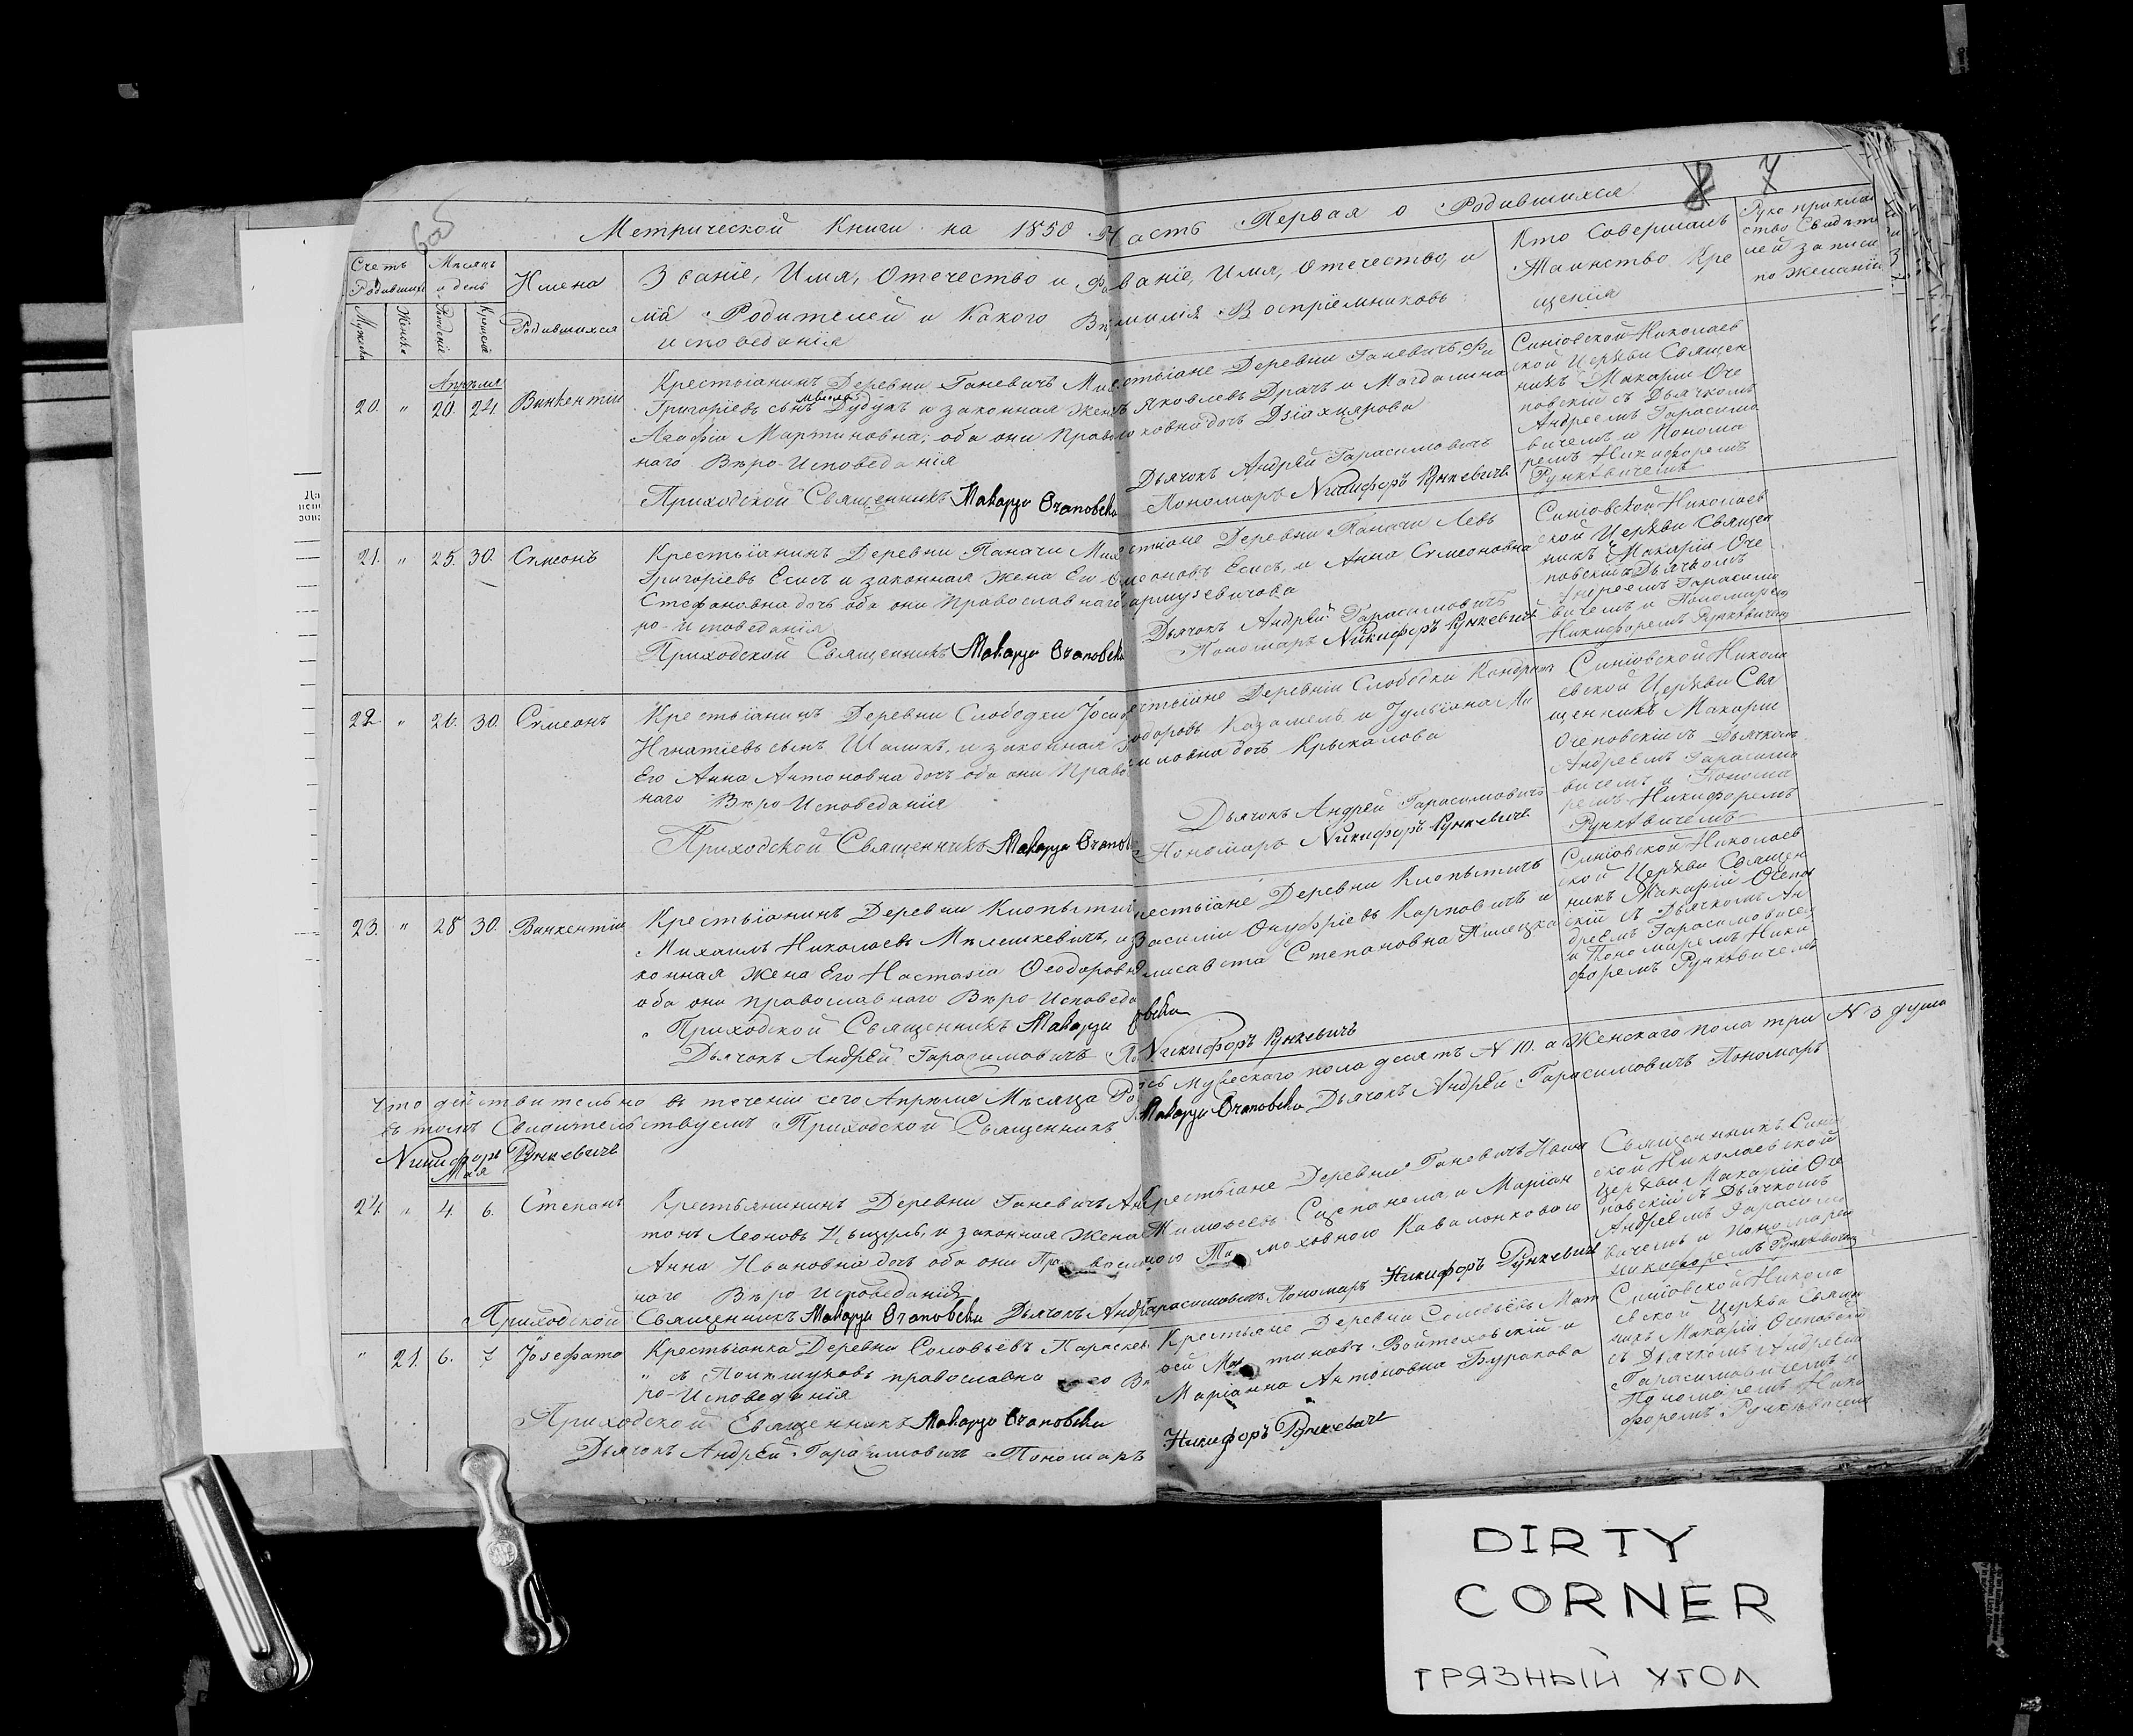 Метрической Книги на 1850 Часть Первая о Родившихся 8 7
Счетъ Родившихся
Мужеска
Женска
Мѣсяцъ и день
Рожденіе
Крещенія
Имена
Родившихся
Званіе, Имя, Отечество и Фа
Родителей и Какого Вѣ
исповеданія
ваніе, Имя, Отечество, и
милія Воспріемниковъ
Кто Совершалъ
Таинство Кре
щенія
Руко приклад
ство Свидѣте
лей записи
по Желанію
Апрѣля
20. " 20. 24. Винкентій
Крестьянинъ Деревни Ганевичъ
Григоріевъ сынъ Дудукъ и законная Жена
Агафія Мартиновна; оба они Право
наго Вѣро-Исповеданія
Приходской Священникъ Макарій Очаповскі
стьіане Деревни Ганевичъ, Фи
Яковлевъ Драчъ и Магдалина
ховна дочь
Дьячокъ Андрѣй Гарасимовичъ
Пономаръ Никифоръ Рункевичъ
Синіовской Николаев
ской Церкви Священ
никъ Макарій Оче
повскій съ Дьячкомъ
Андреемъ Гарасимо
вичемъ и Понома
ремъ Никифоремъ
Рункѣвичемъ
21. " 25. 30. Сѵмеонъ
Крестьіанинъ Деревни Паначи
Григоріевъ Есисъ и законная Жена Его
Стефановна дочь оба они Православнаго
ро-Исповеданія
Приходской Священникъ Макарій Очаповскі
стіане Деревни Паначи Левъ
меоновъ Есисъ, и Анна Сѵмеоновна
армузевичова
Дьячокъ Андрѣй Гарасимовичъ
Пономаръ Никифоръ Рункевичъ
Синіовской Николаев
ской Церкви Священ
никъ Макарій Оче
повскій съ Дьячкомъ
Андреемъ Гарасимо
вичемъ и Пономаремъ
Никифоремъ Рункѣвичемъ
22. " 26. 30. Сѵмеонъ
Крестьіанинъ Деревни Слободки Іоси
Игнатіевъ сынъ и законная
Его Анна Антоновна дочь оба они Право
наго Вѣро-Исповеданія
Приходской Священникъ Макарій Очапов
естьіяне Деревни Слободки Кондратъ
одоровъ и Іульіана
дочь Крыкалова
Дьячокъ Андрѣй Гарасимовичъ
Пономаръ Никифоръ Рункевичъ
Синіовской Никола
евской Церкви Свя
щенникъ Макарій
Очеповскій съ Дьячкомъ
Андреемъ Гарасимо
вичемъ и Понома
ремъ Никифоремъ
Рункѣвичемъ
23. " 28 30. Винкентій
Крестьіанинъ Деревни Клопытич
Михаилъ Николаевъ Мѣлешкевичъ, и за
конная Жена Его Настазіа Ѳеодоровна
оба они православнаго Вѣро-Исповеда
Приходской Священникъ Макарій
Дьячокъ Андрѣй Гарасимовичъ
рестьіане Деревни Клопытичъ
Василій Онуфріевъ Карповичъ и
лисавета Степановна
овскі
Никифоръ Рункевичъ
Синіовской Николаев
ской Церкви Священ
никъ Макарій Очепов
скій съ Дьячкомъ Ан
дреемъ Гарасимовичемъ
и Пономаремъ Ники
форемъ Рункѣвичемъ
Что дѣйствительно въ теченіи сего Апрѣля Мѣсяца Ро
сь Мужескаго пола десять N 10. а Женскаго пола три N 3 душа
въ томъ Свидѣтельствуемъ Приходской Священникъ
Макарій Очаповскі Дьячокъ Андрѣй Гарасимовичъ Пономаръ
Никифоръ Рункевичъ
Мая
24. " 4. 6. Степанъ
Крестьянининъ Деревни Ганевичъ Ан
тонъ Леоновъ и законная Жена
Анна Ивановна дочь оба они Православ
наго Вѣро Исповеданія
Приходской Священникъ Макарій Очаповскі Дьячокъ Андрѣй
Крестьіане Деревни Ганевичъ
Тимоѳеевъ Сцепанела, и Маріан
Гарасимовичъ, Пономаръ Никифоръ Рункевичъ
Священникъ Синіов
ской Николаевской
Церкви Макарій Оче
повскій съ Дьячкомъ
Андреемъ Гарасимо
вичемъ и Пономаремъ
Никифоремъ Рункѣвичемъ
" 21. 6. 7. Іозефата
Крестьянка Деревни Соловьёвъ Параскев
православна го Вѣ
ро-Исповеданія
Приходской Священникъ Макарій Очаповскі
Дьячокъ Андрѣй Гарасимовичъ Пономаръ
Крестьяне Деревни Соловьёвъ Мат
ѳей Мартиновъ Войтеховскій и
Маріанна Антоновна Буракова
Никифоръ Рункевичъ
Синіовской Никола
евской Церкви Священ
никъ Макарій Очеповскій
съ Дьячкомъ Андреемъ
Гарасимовичемъ и
Пономаремъ Ники
форемъ Рункѣвичемъ
DIRTY
CORNER
ГРЯЗНЫЙ УГОЛ